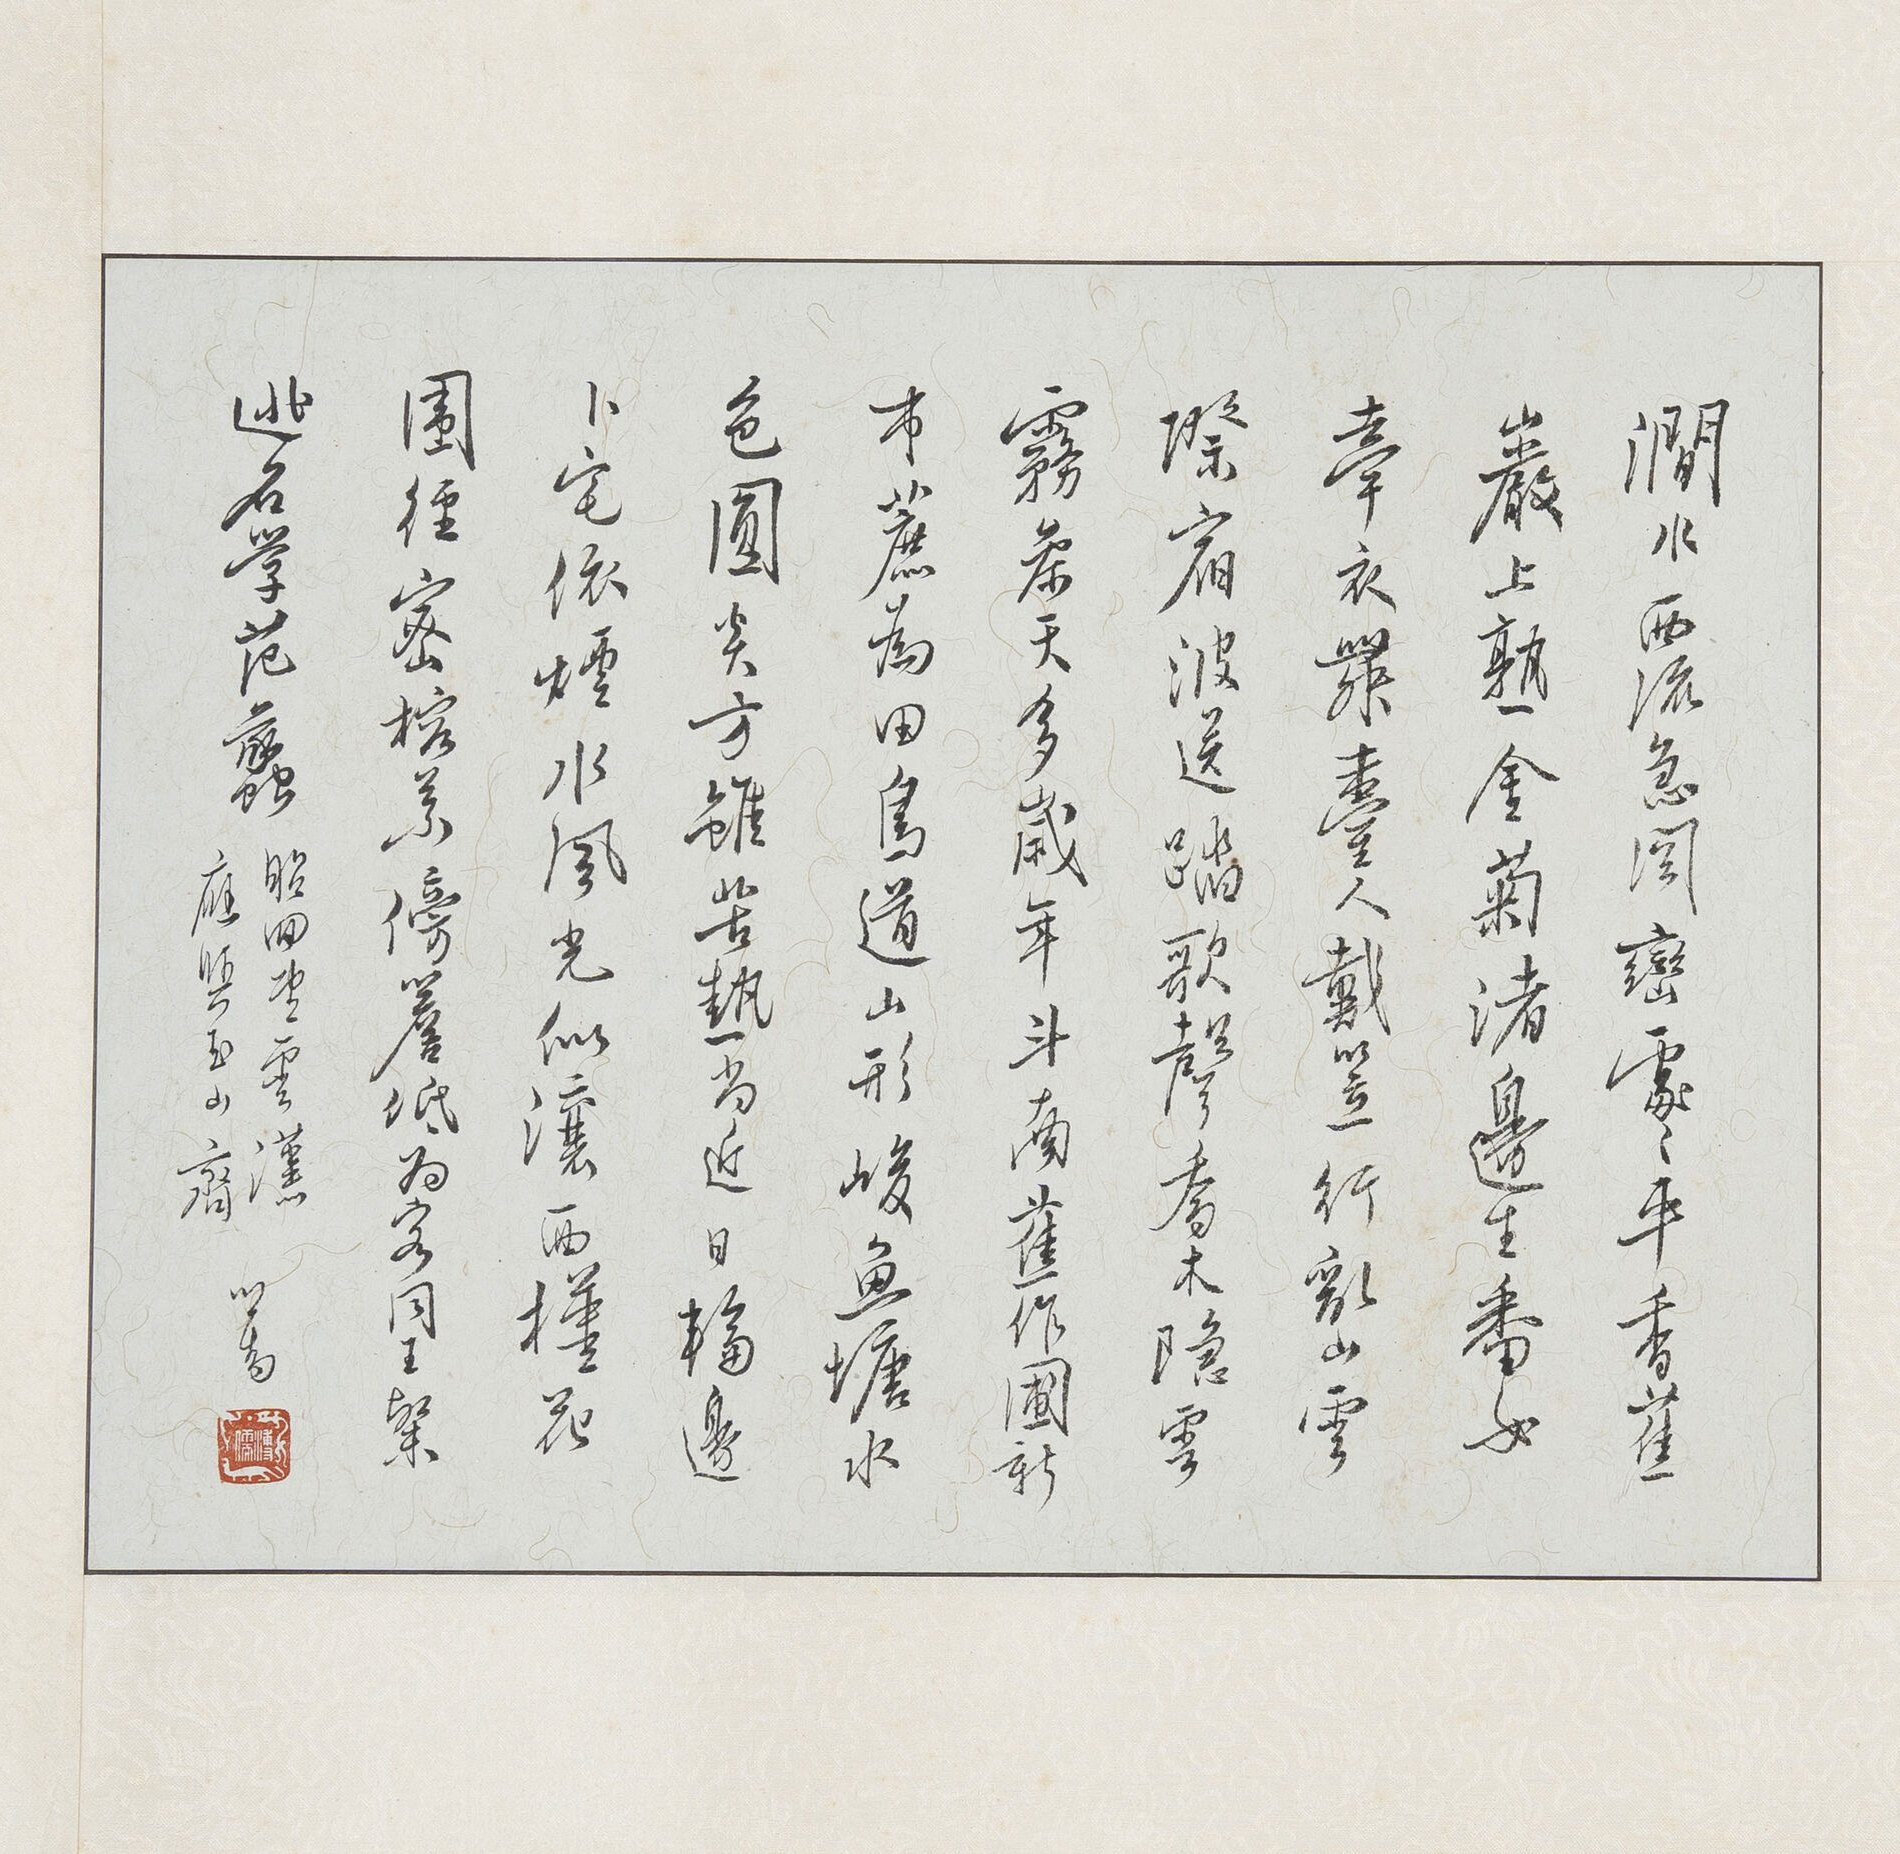 澗水西流急閩巒處〻平香蕉
巖上熟金菊渚邊生番女
牽衣舞臺人戴笠行亂山雲
際宿波送踏歌聲喬木隱雲
霧參天多歲年斗南蕉作圃新
市蔗為田鳥道山形峻魚塘水
色圓炎方雖苦熱尚近日輪邊
卜宅依煙水風光似瀼西槿花
圍徑密榕葉傍簷低為客同王粲
逃名學范蠡
昭回望雲漢
應與玉山齊
心畬
溥儒